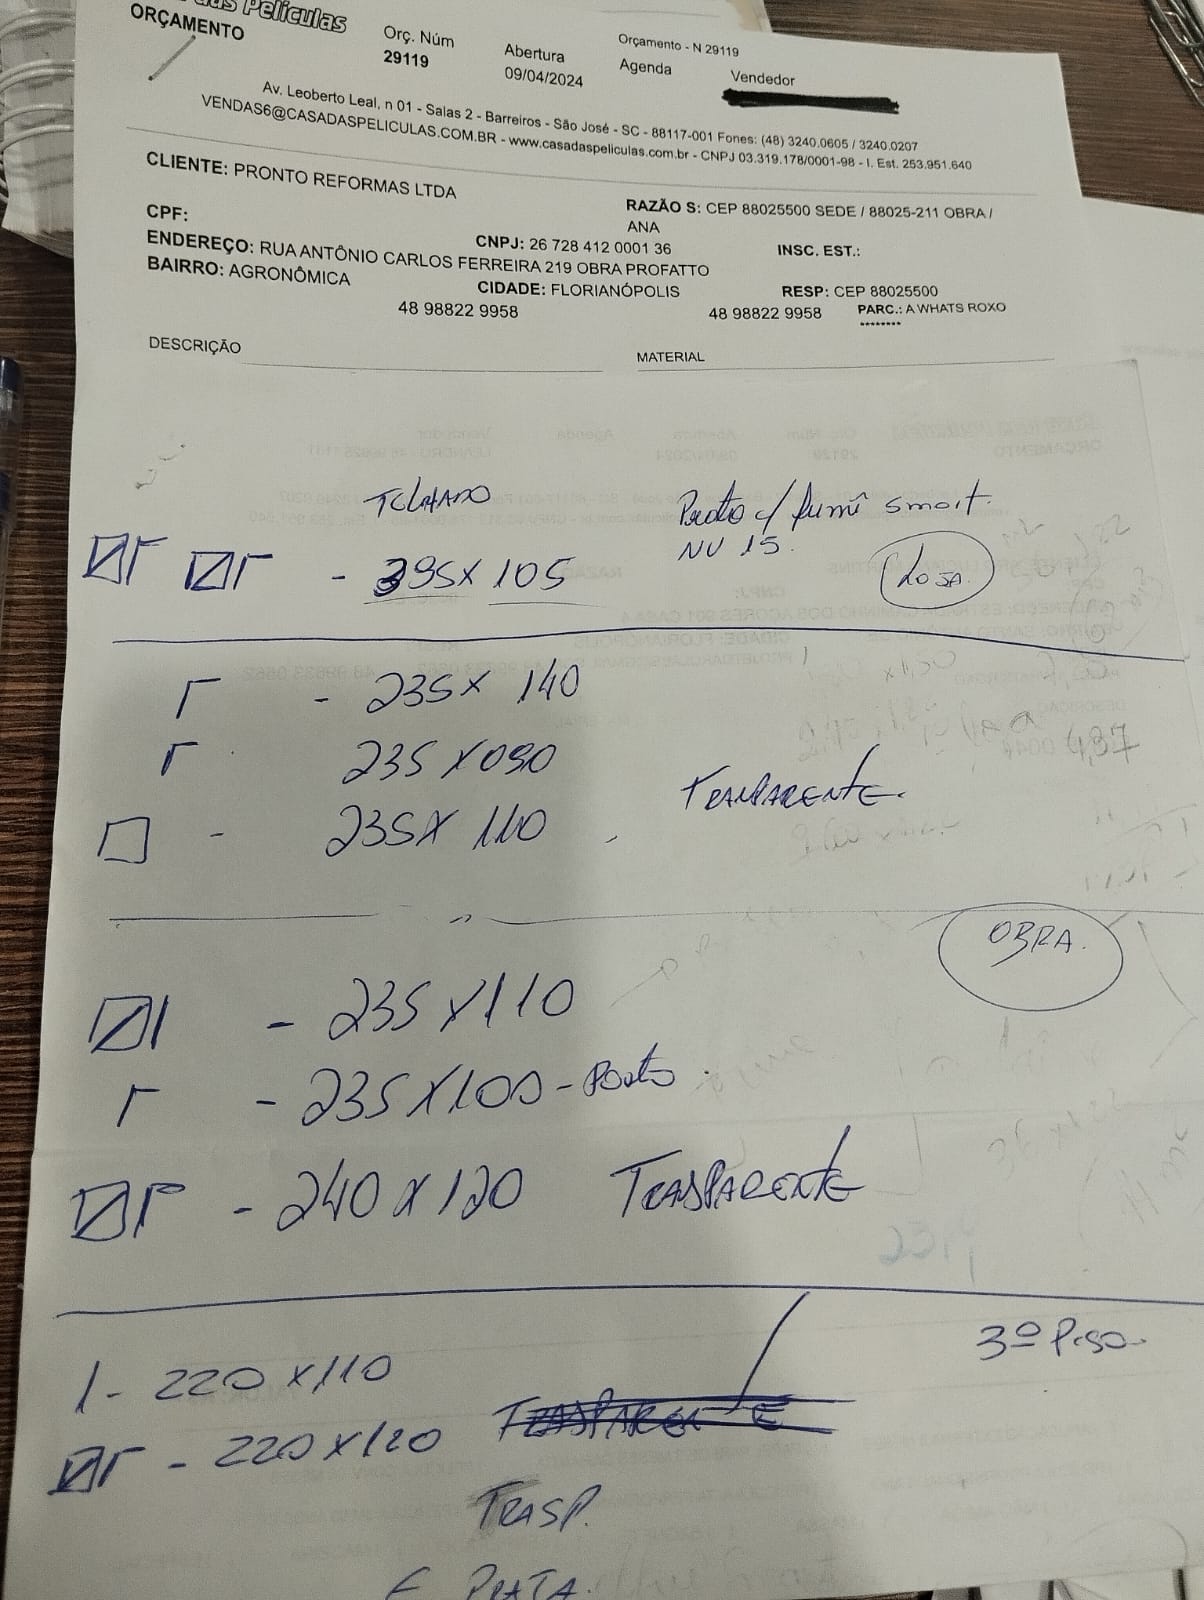 das Películas
ORÇAMENTO
Orç. Núm
29119
Abertura
09/04/2024
Orçamento - N 29119
Agenda
Vendedor
Av. Leoberto Leal, n 01 - Salas 2 - Barreiros - São José - SC - 88117-001 Fones: (48) 3240.0605 / 3240.0207
VENDAS6@CASADASPELICULAS.COM.BR - www.casadaspeliculas.com.br - CNPJ 03.319.178/0001-98 - I. Est. 253.951.640
CLIENTE: PRONTO REFORMAS LTDA
RAZÃO S: CEP 88025500 SEDE / 88025-211 OBRA /
ANA
CPF:
CNPJ: 26 728 412 0001 36
INSC. EST.:
ENDEREÇO: RUA ANTÔNIO CARLOS FERREIRA 219 OBRA PROFATTO
BAIRRO: AGRONÔMICA
CIDADE: FLORIANÓPOLIS
RESP: CEP 88025500
48 98822 9958
48 98822 9958
PARC.: A WHATS ROXO
********
DESCRIÇÃO
MATERIAL
TELHADO
c/ fumê smart.
NV 15.
- 395 x 105
LOJA.
- 235 x 140
235 x 090
- 235 x 110
TRANPARENTE.
OBRA.
- 235 x 110
- 235 x 100 - Porta
- 240 x 120 TRASPARENTE
3º Piso
- 220 x 110
- 220 x 120
TRASP.
E PRATA.